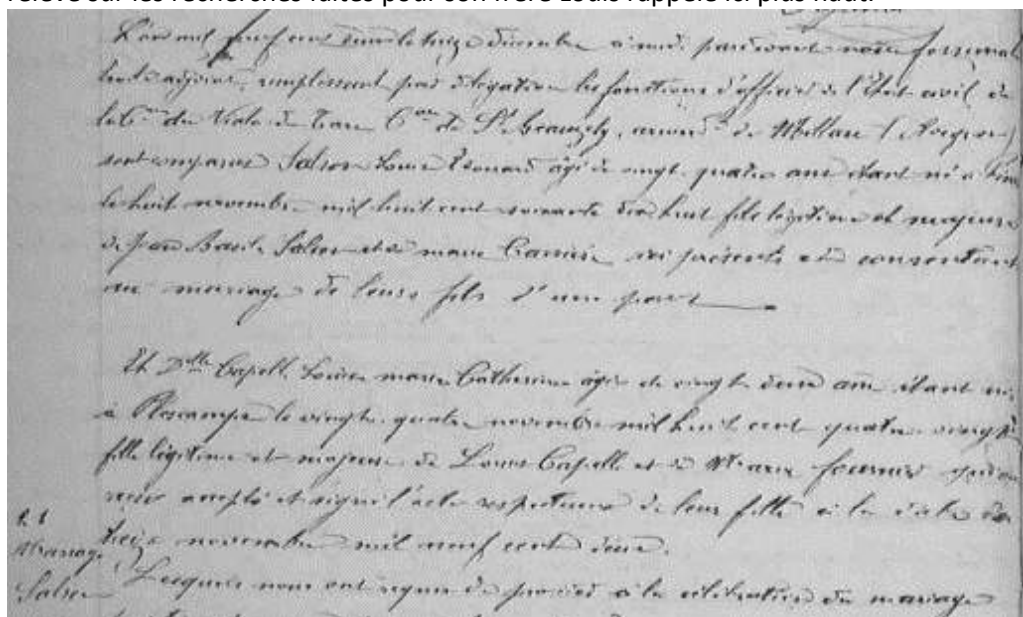 relevé sur les recherches faites pour son frère Louis rappelé ici plus haut.
L'an mil neuf cent deux le treize décembre à midi pardevant nous
adjoint, remplissant par délégation les fonctions d'officier de l'État civil de
la Cne du Viala du Tarn Con de St Beauzely, arrondt de Millau (Aveyron)
sont comparus Salson Louis Édouard âgé de vingt quatre ans étant né à
le huit novembre mil huit cent soixante dix huit fils légitime et majeur
de Jean Basile Salson et de marie Carrière ici présents et consentant
au mariage de leurs fils d'une part
Et Dlle Capelle Louise marie Catherine âgée de vingt deux ans étant née
à le vingt quatre novembre mil huit cent quatre vingt
fille légitime et majeure de Louis Capelle et de Marie fournier
accepté et signé l'acte respectueux de leur fille à la date du
treize novembre mil neuf cent deux.
Mariage
Salson
Lesquels nous ont requis de procéder à la célébration du mariage